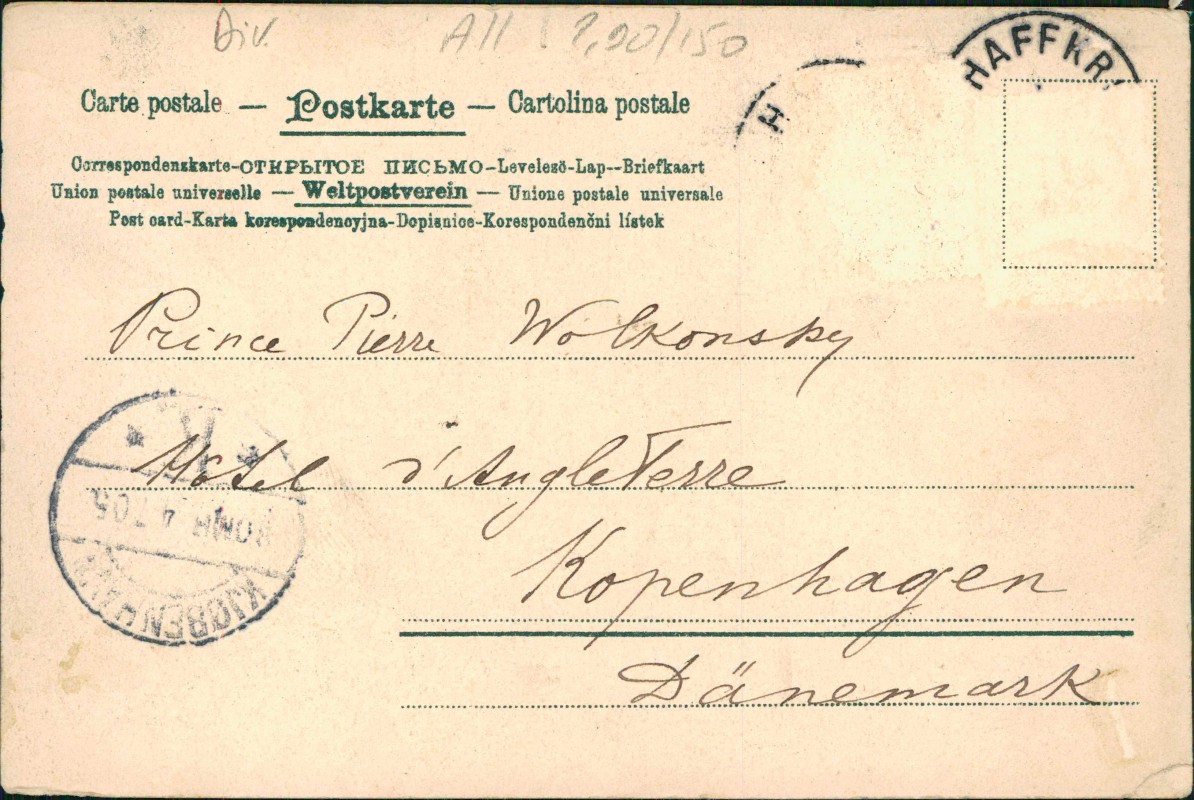 Div.
All ! 2,90/150
HAFFKR
H
Carte postale — Postkarte — Cartolina postale
Correspondenzkarte-ОТКРЫТОЕ ПИСЬМО-Levelező-Lap--Briefkaart
Union postale universelle — Weltpostverein — Unione postale universale
Post card-Karta korespondencyjna-Dopisnice-Korespondenční lístek
Prince Pierre Wolkonsky
Hotel d'AngleTerre
Kopenhagen
Dänemark
4.7.05
KJØBENHAVN